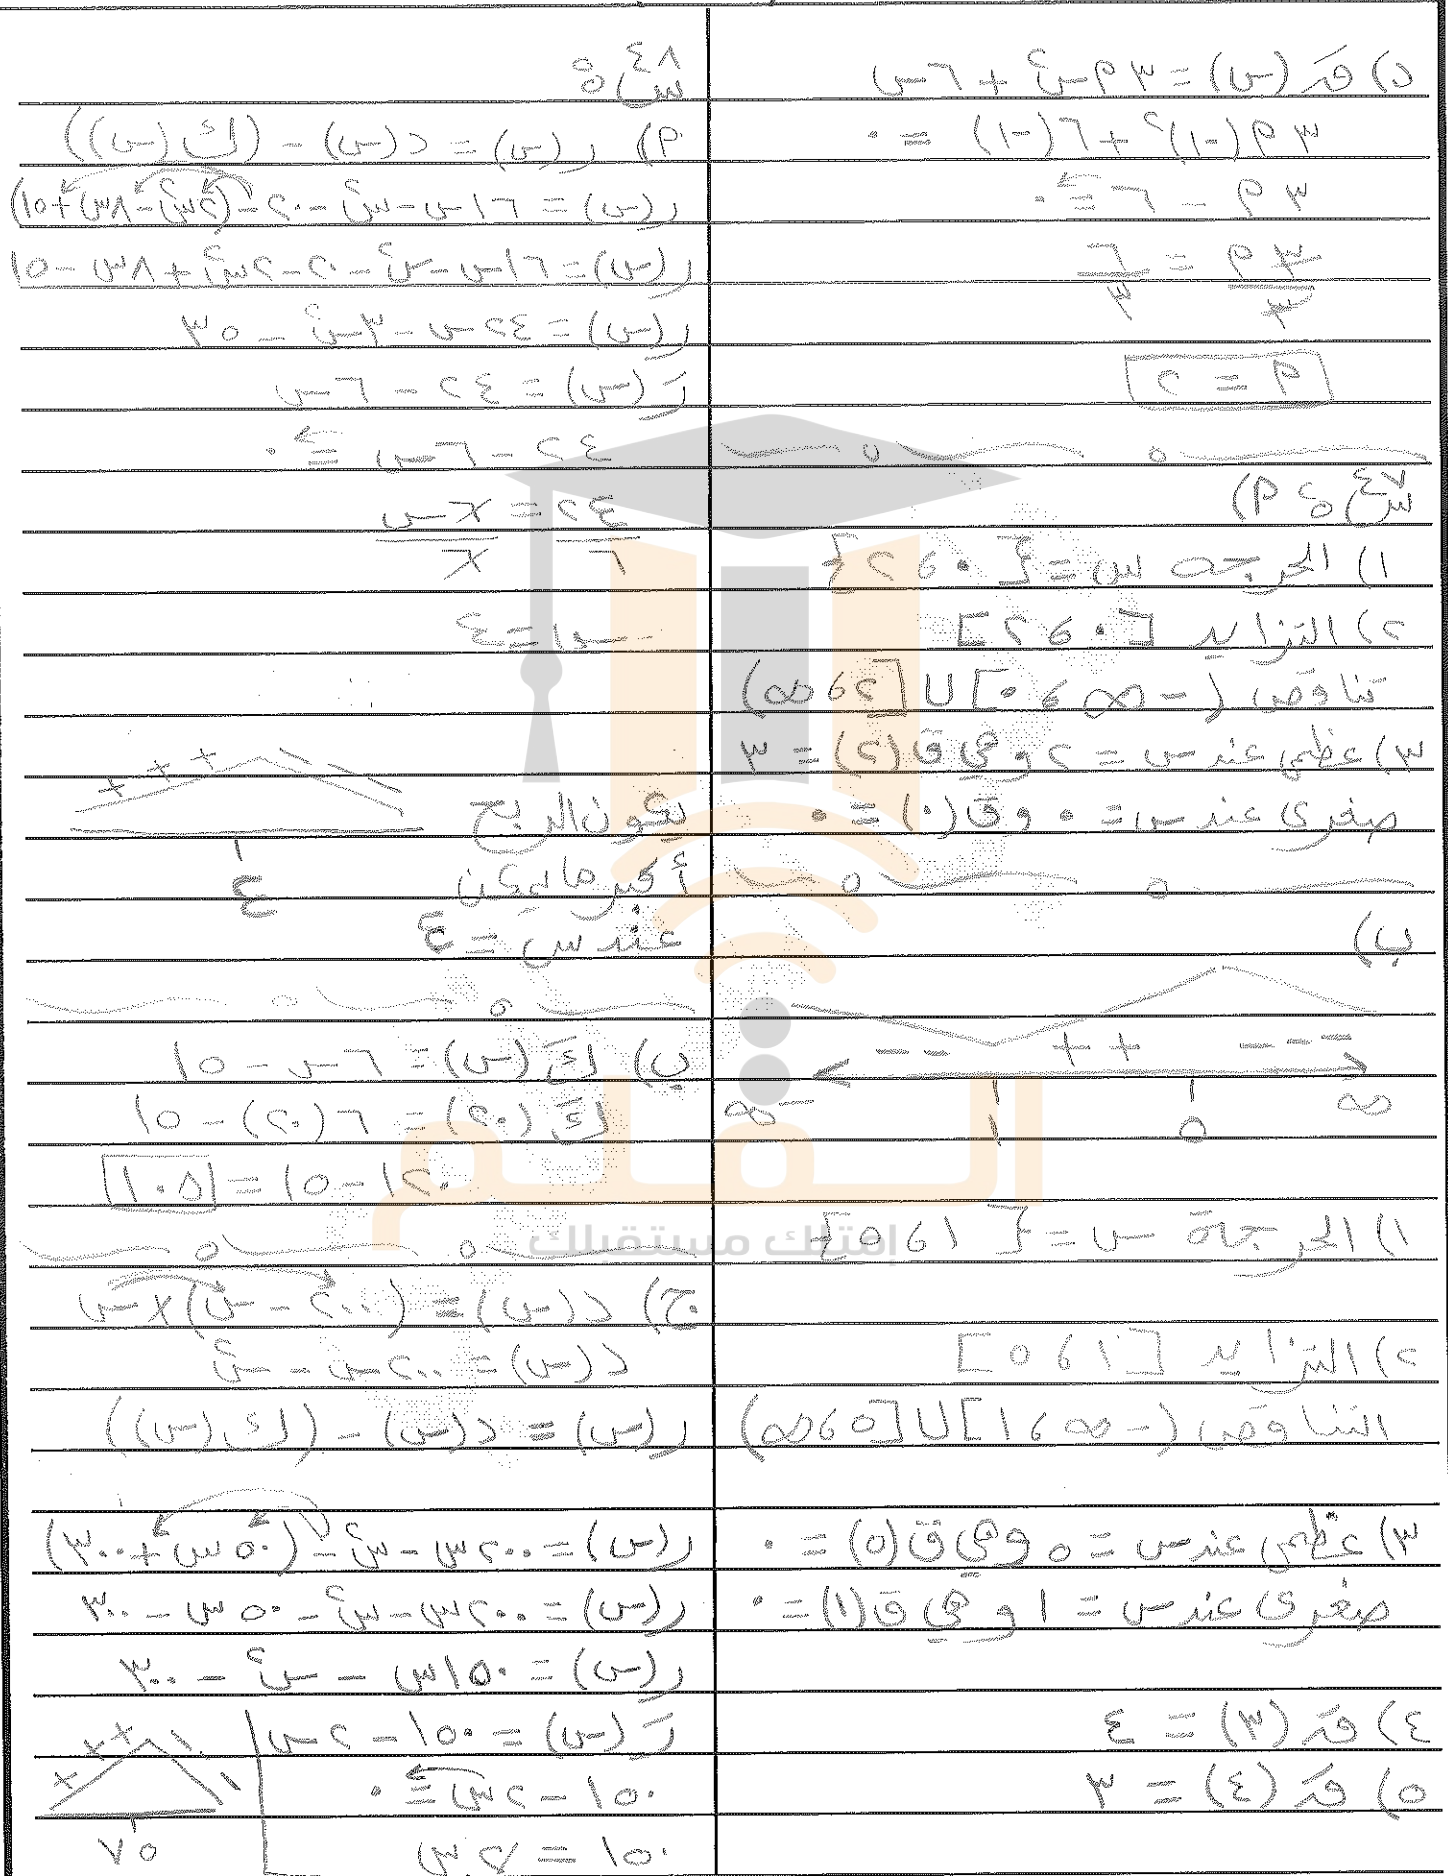 د) قَ (س) = ٣ م س٢ + ٦ س
٣ م (-١)٢ + ٦ (-١) = ٠
٣ م - ٦ = ٠
٣ م / ٣ = ٦ / ٣
م = ٢
س٤٧ ٤ م)
١) الحرجه س = {٠ ، ٢}
٢) التزايد [٠ ، ٢]
تناقص (-∞ ، ٠] U [٢ ، ∞)
٣) عظمى عند س = ٢ وهي ق(٢) = ٣
صغرى عند س = ٠ و ق(٠) = ٠
ب)
-- ++ ---
-∞ ١ ٥ ∞
١) الحرجة س = {١ ، ٥}
٢) التزايد [١ ، ٥]
التناقص (-∞ ، ١] U [٥ ، ∞)
٣) عظمى عند س = ٥ وهي ق(٥) = ٠
صغرى عند س = ١ وهي ق(١) = ٠
٤) قَ (٣) = ٤
٥) قَ (٤) = ٣
س٤٨ ٥
م) ر(س) = د(س) - (ك(س))
ر(س) = ١٦س - س٢ - ٢٠ - (٢س٢ - ٨س + ١٥)
ر(س) = ١٦س - س٢ - ٢٠ - ٢س٢ + ٨س - ١٥
ر(س) = ٢٤س - ٣س٢ - ٣٥
رَ(س) = ٢٤ - ٦س
٢٤ - ٦س = ٠
٢٤ / ٦ = ٦س / ٦
س = ٤
+ + + - - -
يكون الربح
٤
أكبر ما يمكن
عند س = ٤
ب) كَ(س) = ٦س - ١٥
كَ(٢٠) = ٦(٢٠) - ١٥
١٢٠ - ١٥ = ١٠٥
ج) د(س) = (٢٠٠ - س) × س
د(س) = ٢٠٠س - س٢
ر(س) = د(س) - (ك(س))
ر(س) = ٢٠٠س - س٢ - (٥٠س + ٣٠٠)
ر(س) = ٢٠٠س - س٢ - ٥٠س - ٣٠٠
ر(س) = ١٥٠س - س٢ - ٣٠٠
رَ(س) = ١٥٠ - ٢س
١٥٠ - ٢س = ٠
١٥٠ = ٢س
+ + + - -
٧٥
المعلم
إمتلك مستقبلك